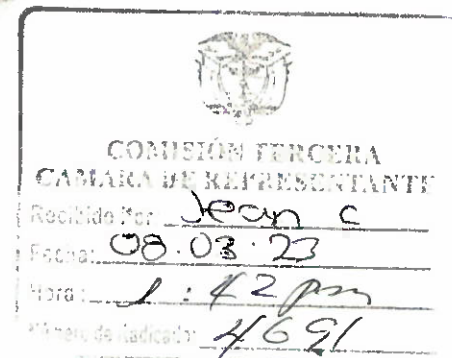 COMISIÓN TERCERA
CAMARA DE REPRESENTANTE
Recibido Por Jean C
Fecha: 08.03.23
Hora: 1:42 pm
Número de Radicado: 4691